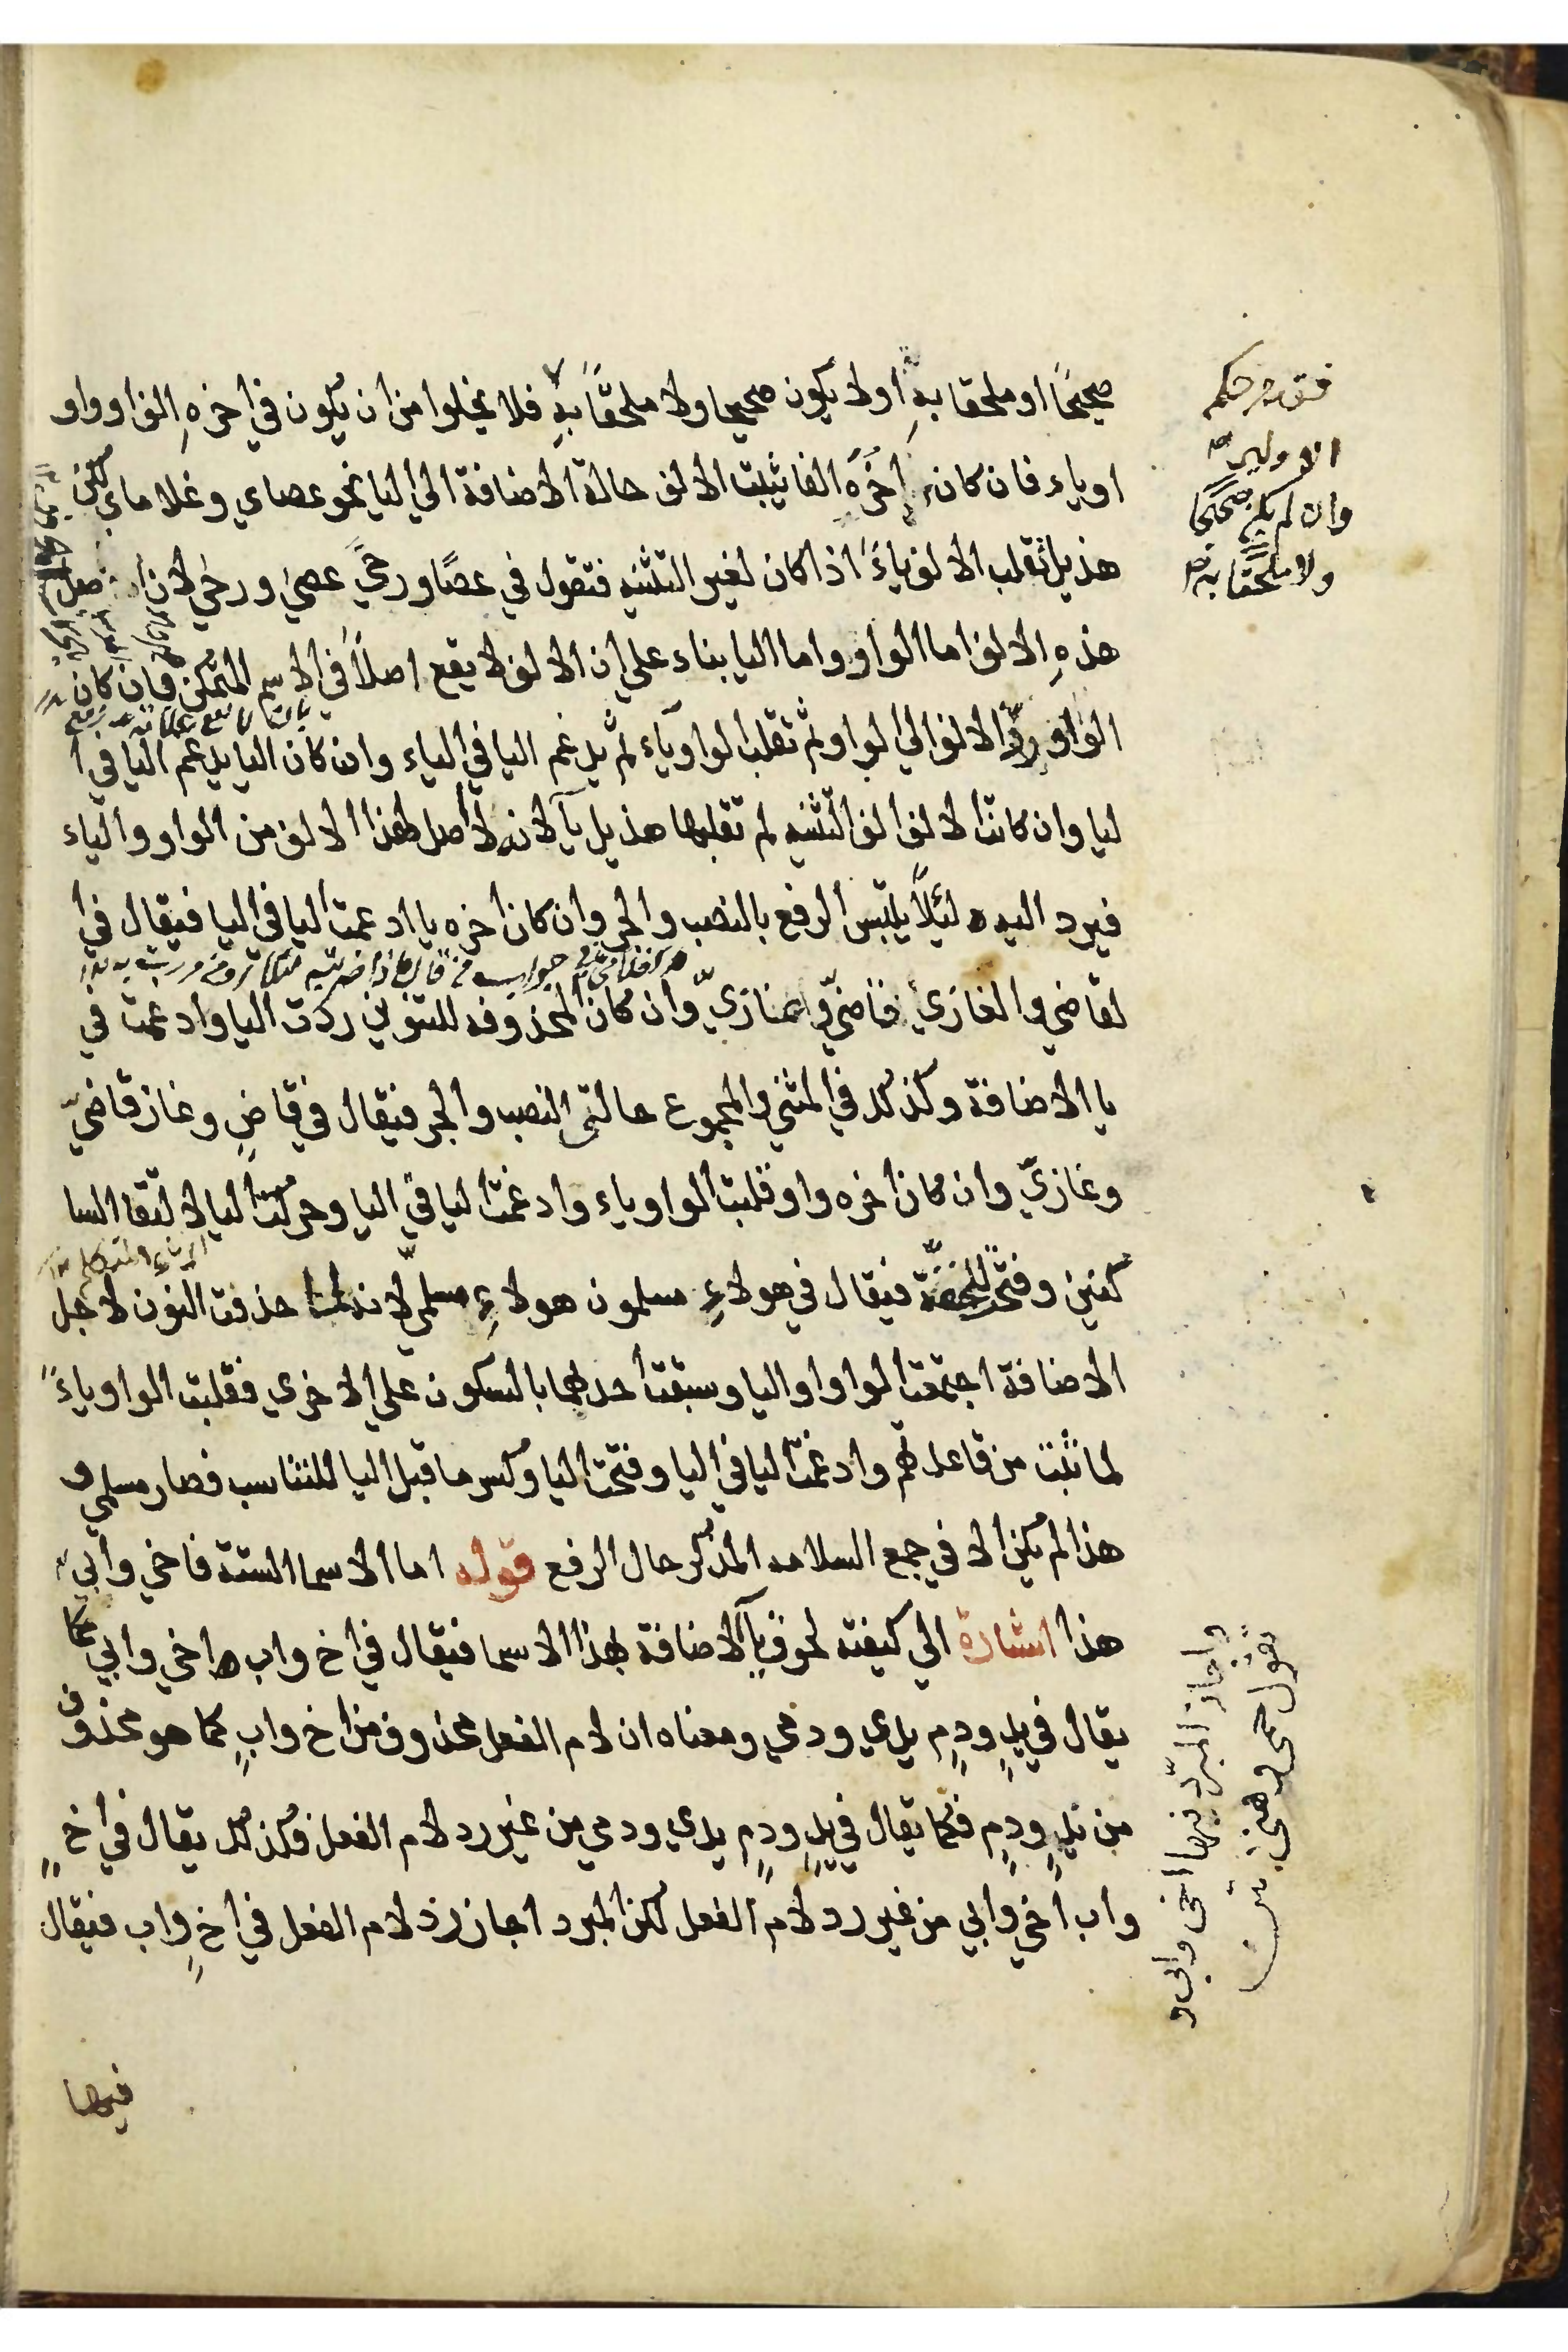 صحيحًا او ملحقا بهِ اولا يكون صحيحا ولا ملحقًا بهِ فلا يخلوا من ان يكون في اخرهِ الف او واو
او ياء فان كان اخرَه الفا يثبت الالف حالة الاضافة الى اليا نحو عصاي وغلاماي لكن
هذيل تقلب الالف ياءً اذا كان لغير التثنيه فتقول في عصًا ورحًى عصيّ ورحيّ لان اصل
هذهِ الالف اما الواو واما اليا بناء على ان الالف لا يقع اصلاً في الاسم المتمكن فان كان
الواو ردّ الالف الى الواو ثم تقلب الواو ياء ثم يدغم اليا في الياء وان كان اليا يدغم اليا في ا
ليا وان كانت الالف الف التثنيه لم تقلبها هذيل يآ لانه لا اصل لهذا الالف من الواو والياء
فيرد اليه لئلاّ يلتبس الرفع بالنصب والجر وان كان اخره يا ادغمت اليا في اليا فيقال في ا
لقاضي والغازي قاضيّ وغازيّ وان كان المحذوفه للتنوين ردّت اليا وادغمت في
يا الاضافة وكذلك في المثنى والمجموع حالتى النصب والجر فيقال في قاضٍ وغاز قاضيّ
وغازيّ وان كان اخره واو قلبت الواو ياء وادغمت اليا في اليا وحركت اليا لالتقا السا
كنين وفتح للخفّة فيقال في هولاءِ مسلمون هولاءِ مسلميّ لانه لما حذفت النون لاجل
الاضافة اجتمعت الواو واليا وسبقت احدهما بالسكون على الاخري فقلبت الواو ياءً
لما ثبت من قاعدتهم وادغمت اليا في اليا وفتحت اليا وكسر ما قبل اليا للتناسب فصار مسلمي و
هذا لم يكن الا في جمع السلامه المذكر حال الرفع قوله اما الاسما الستة فاخي وابي
هذا اشارة الي كيفته لحوق يآ الاضافة بهذا الاسما فيقال في اخ واب ها خي وابي كما
يقال في يدٍ ودمٍ يدي ودمي ومعناه ان لام الفعل محذوف من اخ وابٍ كما هو محذوف
من يدٍ ودمٍ فكما يقال في يدٍ ودمٍ يدي ودمي من غير رد لام الفعل فكذلك يقال في اخٍ
واب اخي وابي من غير رد لام الفعل لكن المبرد اجاز رد لام الفعل في اخٍ واب فيقال
فيهما
وان لم يكن صحيحًا
ولا ملحقًا به
واجاز المبرّد فيها اخى وابى و
تقول حمى وهنى